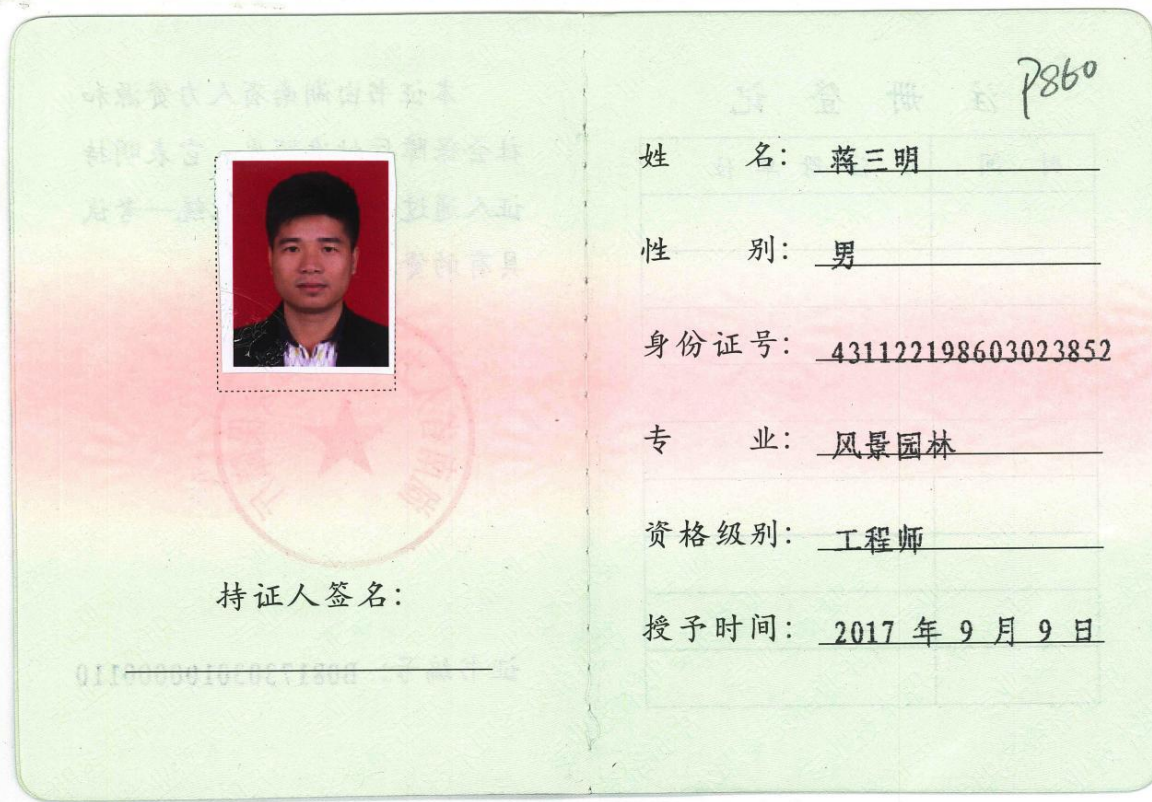 持证人签名：
P860
姓 名：蒋三明
性 别：男
身份证号：431122198603023852
专 业：风景园林
资格级别：工程师
授予时间：2017 年 9 月 9 日